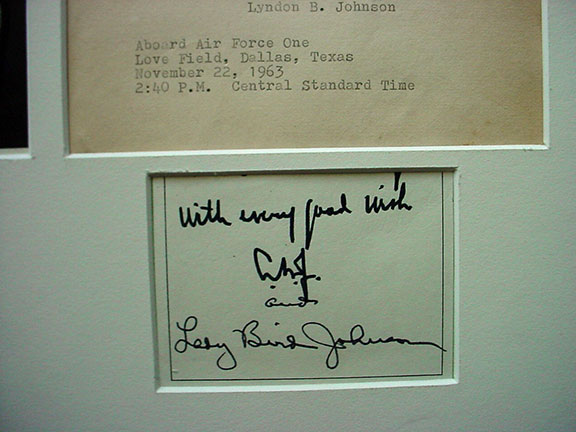 Lyndon B. Johnson
Aboard Air Force One
Love Field, Dallas, Texas
November 22, 1963
2:40 P.M. Central Standard Time
With every good wish
LBJ.
and
Lady Bird Johnson